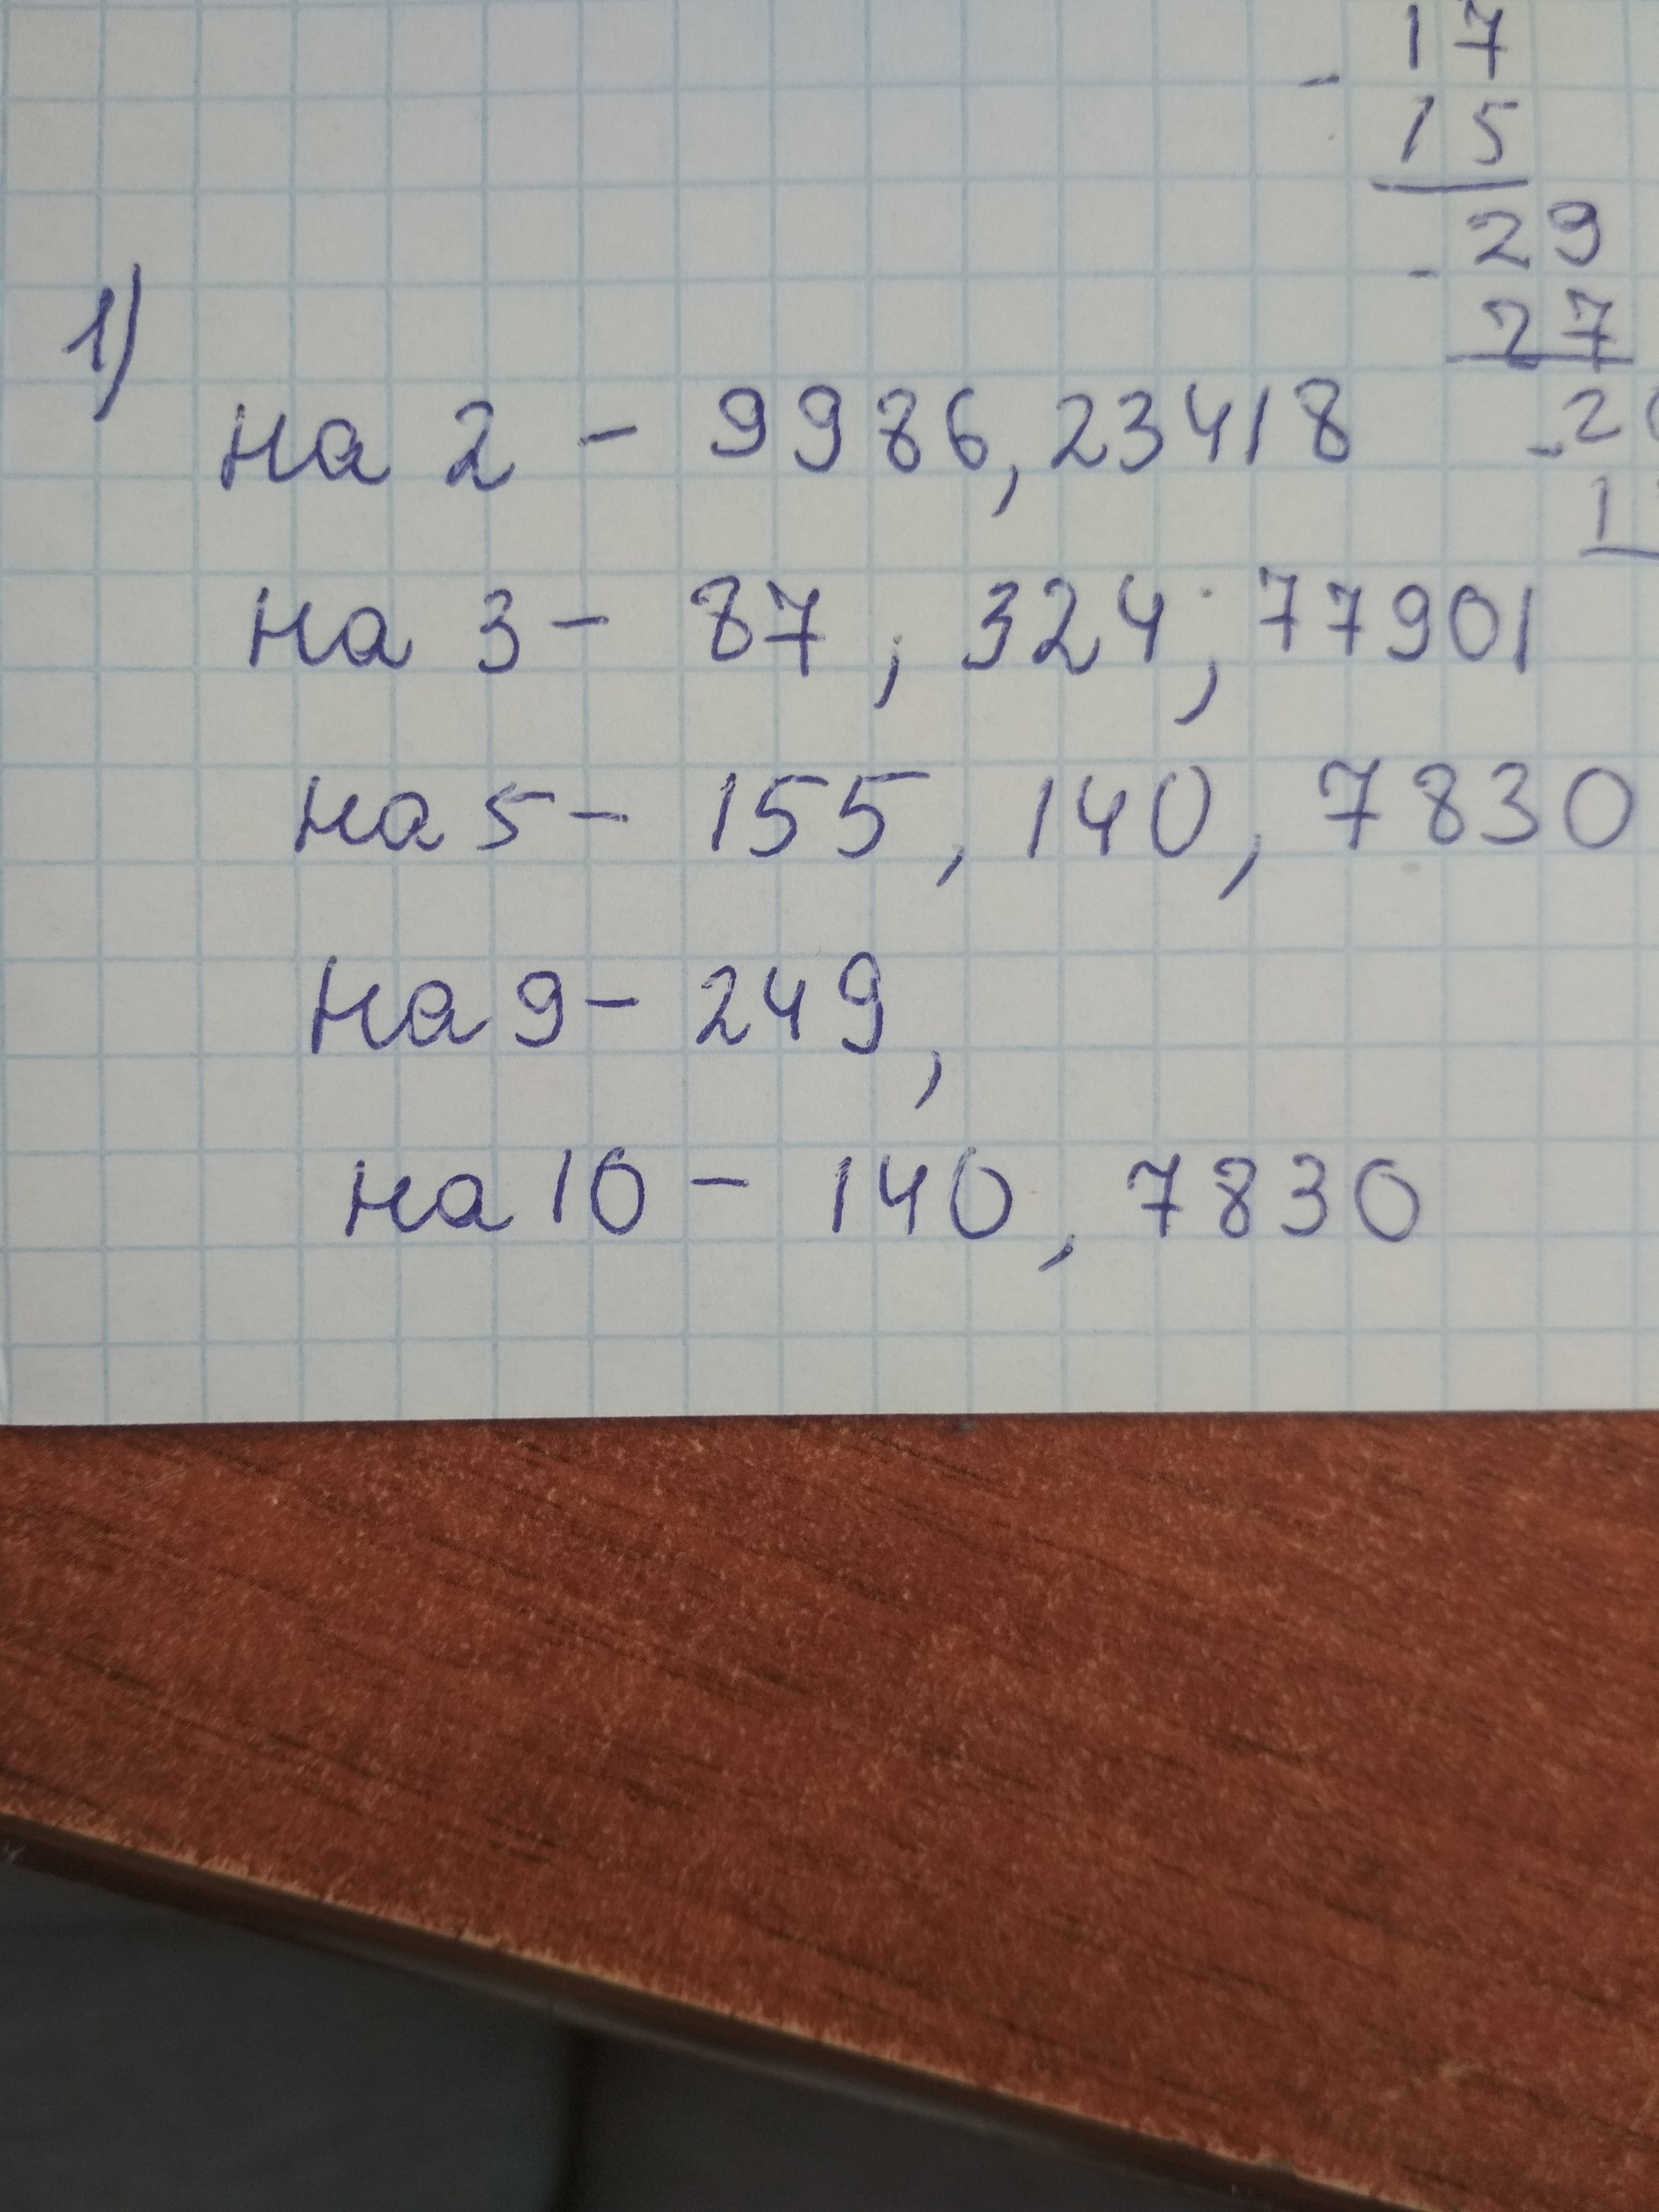 17
- 15
29
- 27
1)
на 2 - 9986, 23418
- 2
1
на 3 - 87, 324, 77901
на 5 - 155, 140, 7830
на 9 - 249,
на 10 - 140, 7830